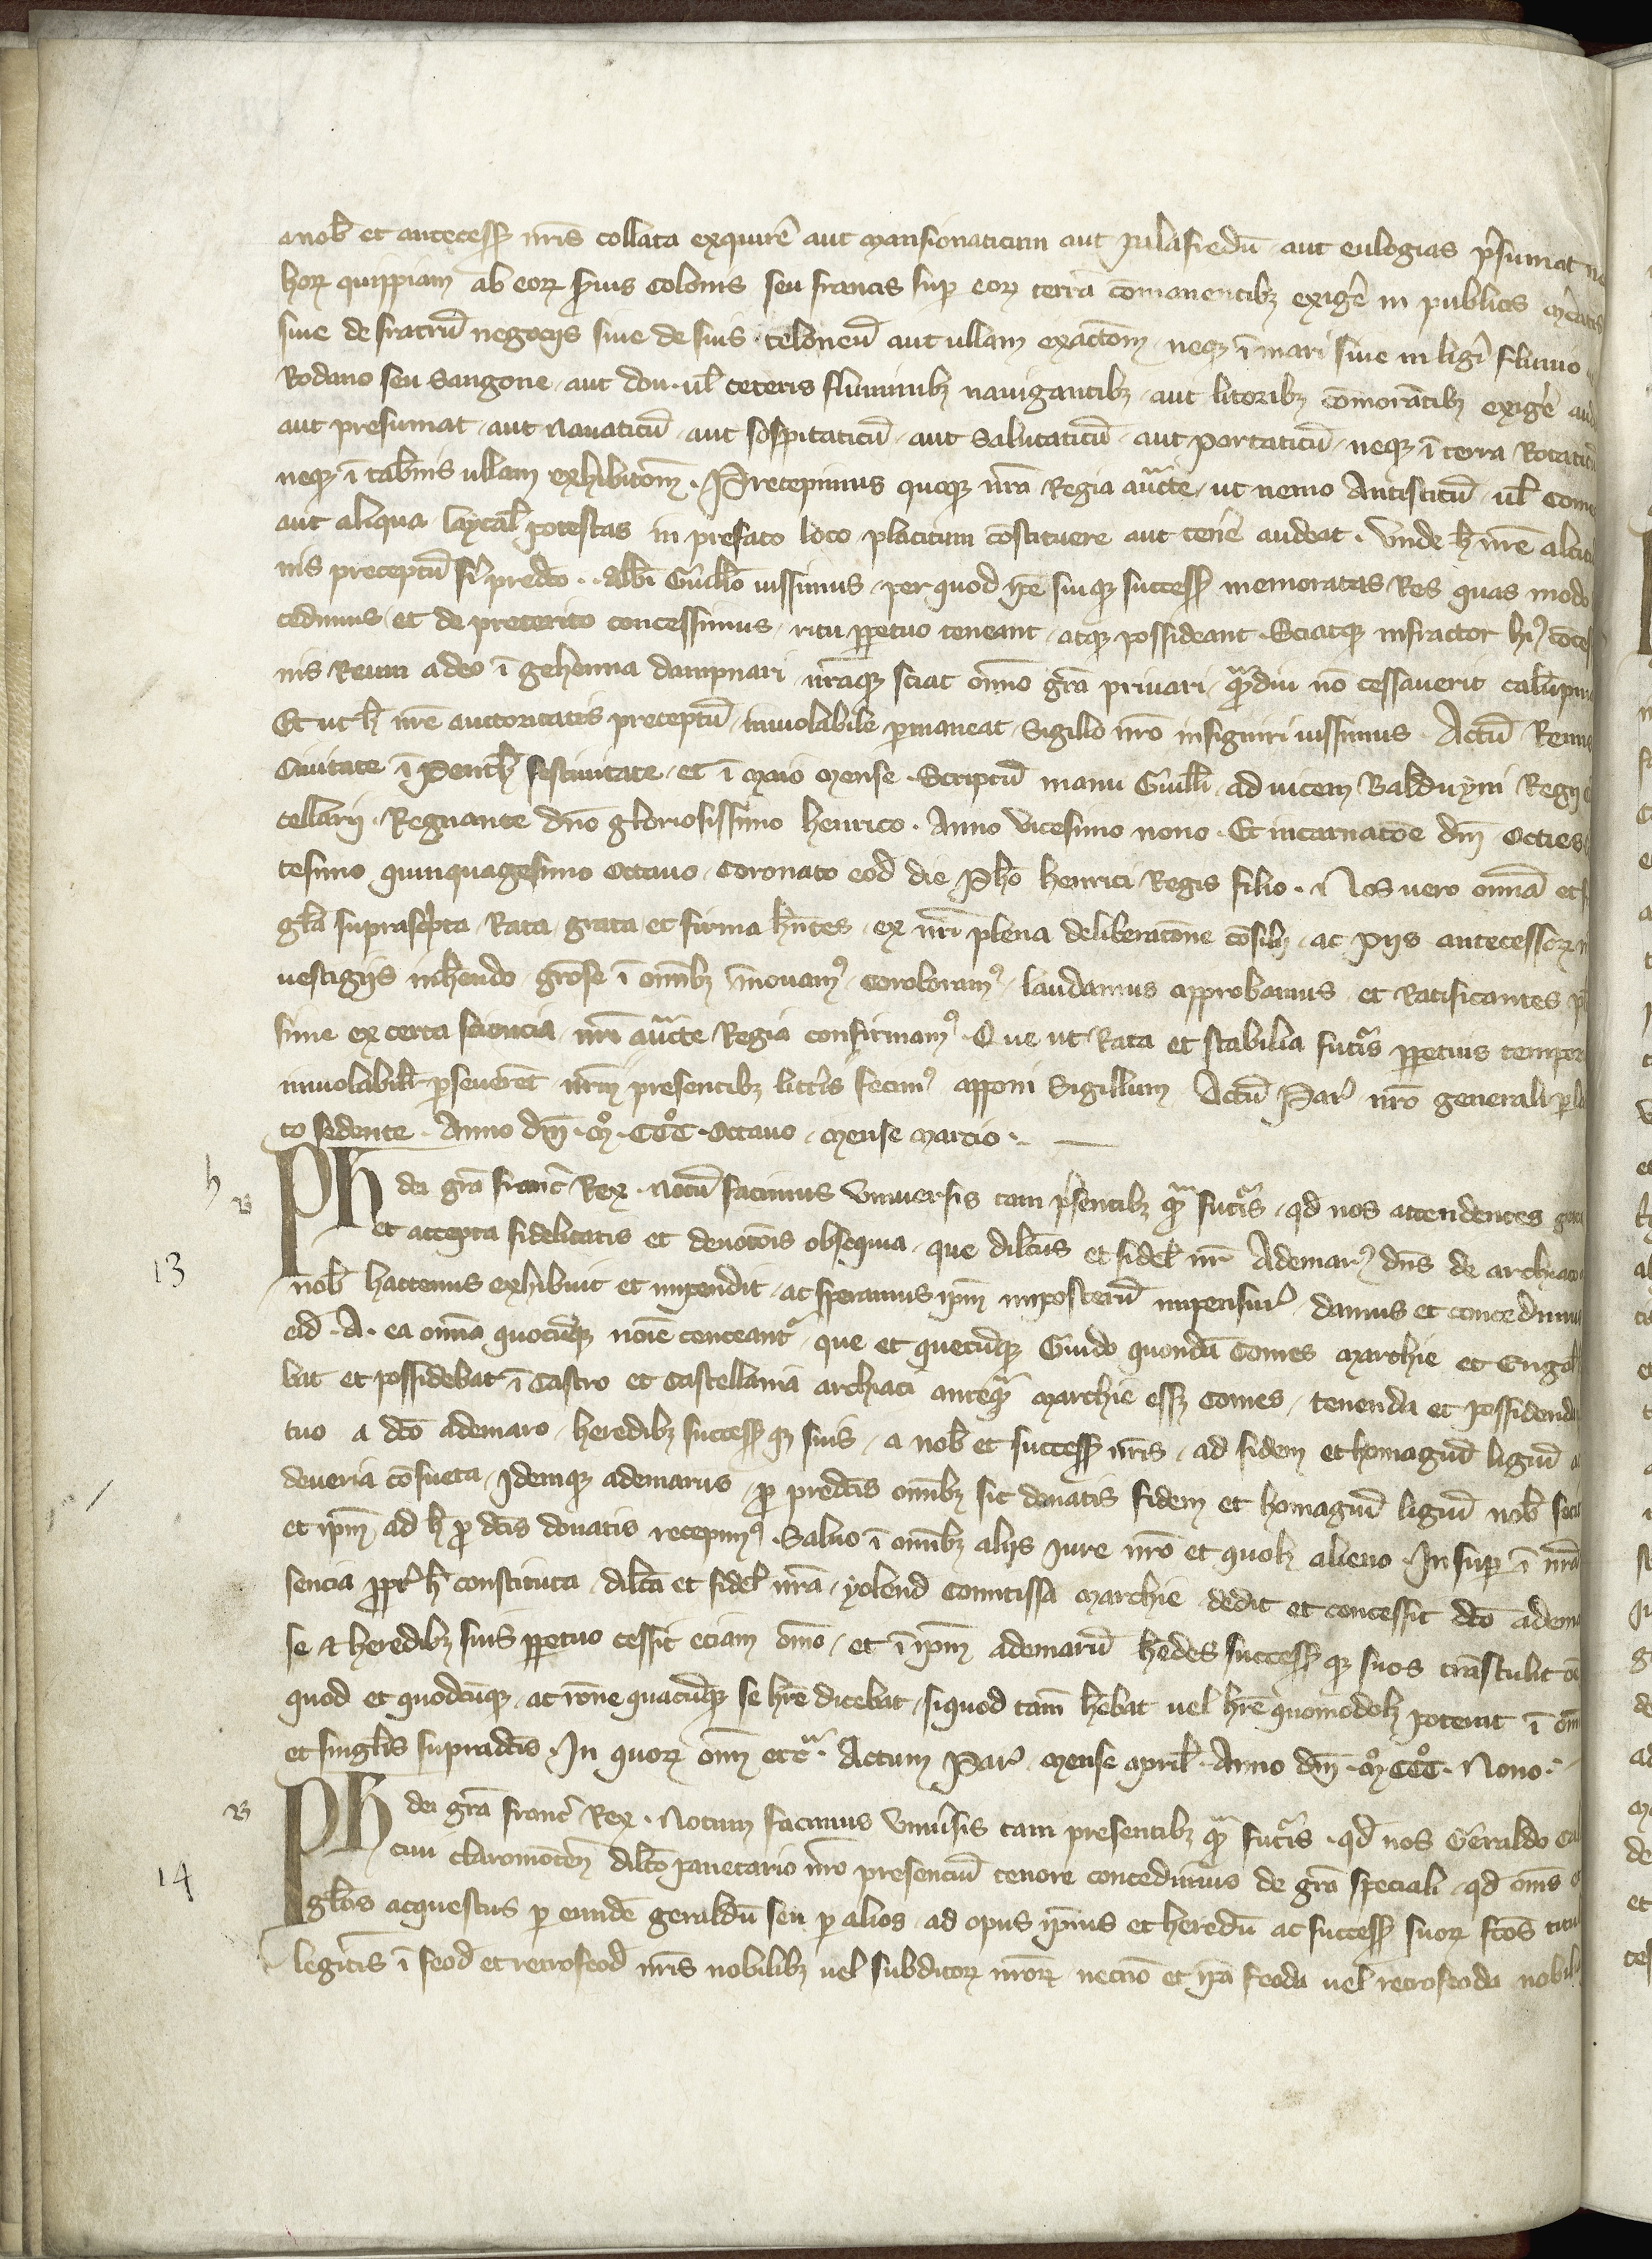 a nob̄ et antecess̄ nr̄is collata exquirē aut mansionaticum aut pulafredū aut eulogias p̄sumat
horꝝ quippiam ab eorꝝ ꝓpriis colonis seu francis sup eorꝝ terrā cōmanentibꝫ exigē in publicis m̄catis
siue de fratrū negocijs siue de suis teloneū aut ullam exactōnem neqꝫ ī mari siue in ligeī fluuio
Rodano seu Sangone aut don ul̄ ceteris fluminibꝫ nauigantibꝫ aut litoribꝫ cōmorātibꝫ exigē
aut presumat aut nauaticū aut sospitaticū aut salutaticū aut portaticū neqꝫ ī terra Rotaticū
neqꝫ ī tab̄nis ullam exhibitōnem . Precepimus quoqꝫ nr̄a Regia auctte ut nemo Antistitū ul̄
aut aliqua laycal̄ potestas in prefato loco placitum cōstituere aut tenē audeat . Unde h̄ nr̄e
nis preceptū fi'i predc̄o . Abb̄i Guill̄o iussimus per quod ip̄e suiqꝫ success̄ memoratas Res quas modo
cedimus et de preterito concessimus ritu ꝑpetuo teneant atqꝫ possideant . Sciatqꝫ infractor hi'
nis Reum a deo ī gehenna dampnari nr̄aqꝫ sciat om̄no gr̄a priuari qᵃmdiu nō cessauerit
Et ut h̄ nr̄e auctoritatis preceptū inuiolabile ꝑmaneat Sigillo nr̄o insigniri iussimus . Actū
Ciuitate ī Pentek̄ festiuitate et ī Maio mense . Scriptū manu Guill̄i ad uicem Balduyni Regij
cellarij . Regnante dn̄o gloriosissimo henrico . Anno vicesimo nono . Et incarnatōe dn̄i
tesimo quinquagesimo Octauo Coronato eod̄ die Ph̄o henrici Regis filio . Nos uero om̄ia et
gl̄a suprasc̄pta Rata grata et firma h̄ntes ex nr̄i plena deliberatōne cōsilij ac pijs antecessorꝝ
vestigijs inh̄endo gr̄ose ī om̄ibꝫ innouam' corroboram' laudamus approbamus et Ratificantes
sime ex certa sciencia nr̄a auctte Regia confirmam' . Que ut Rata et stabilia futīs ꝑpetuis
inuiolabilit̄ ꝑseuerent nr̄m presentibꝫ litt̄is fecim' apponi Sigillum Actū Par' nr̄o generali
to sedente . Anno dn̄i . Mº . CCCº . Octauo . mense marcio .
h
B
Ph dei gr̄a franc̄ Rex . Notū facimus Vniuersis tam p̄sentibꝫ qᵃm futīs qd̄ nos attendentes
et accepta fidelitatis et deuotōis obsequia que dilc̄us et fidel̄ nr̄ Ademar' dn̄s de archiaco
13
nob̄ hactenus exhibuit et impendit ac speramus ip̄m imposterū impensur' damus et concedimus
eid̄ . A . ea om̄ia quocūqꝫ noīe censeant' que et quecūqꝫ Guido quondā Comes Marchie et
bat et possidebat ī Castro et Castellania archiaci anteqᵃm Marchie essꝫ Comes tenenda et possidenda
tuo a dc̄o ademaro heredibꝫ success̄qꝫ suis a nob̄ et success̄ nr̄is ad fidem et homagiū ligiū
deueria cōsueta Idemqꝫ ademarus ꝓ predc̄is om̄ibꝫ sic donatis fidem et homagiū ligiū nob̄
et ip̄m ad h̄ ꝓ dc̄is donatis recepim' . Saluo ī om̄ibꝫ alijs iure nr̄o et quolꝫ alieno . In sup ī nr̄a
sencia ꝓpt' h̄ constituta dilc̄a et fidel̄ nr̄a yolend̄ Comitissa marchie dedit et concessit dc̄o
se et heredibꝫ suis ꝑpetuo cessit eciam om̄o et ī ip̄m ademarū h̄edes success̄qꝫ suos trāstulit
quod et quodcūqꝫ ac rōne quacūqꝫ se h̄re dicebat siquod tam̄ h̄ebat uel h̄re quomodolꝫ poterat ī
et singl̄is supradc̄is . In quorꝝ om̄ etcᵃ . Actum Par' mense april̄ . Anno dn̄i . Mº CCCº . Nono .
B
Ph dei gr̄a franc̄ Rex . Notum facimus Vniu̓sis tam presentibꝫ qᵃm futīs . qd̄ nos Geraldo
ciui claromōten̄ dilc̄o panetario nr̄o presenciū tenore concedimus de gr̄a speciali qd̄ om̄s
14
gl̄os acquestus ꝑ eundē geraldū seu ꝑ alios ad opus ip̄ius et heredū ac success̄ suorꝝ fc̄os
legitīs ī feod̄ et retrofeod̄ nr̄is nobilibꝫ uel subditorꝝ nr̄orꝝ necnō et ip̄a feoda uel retrofeoda